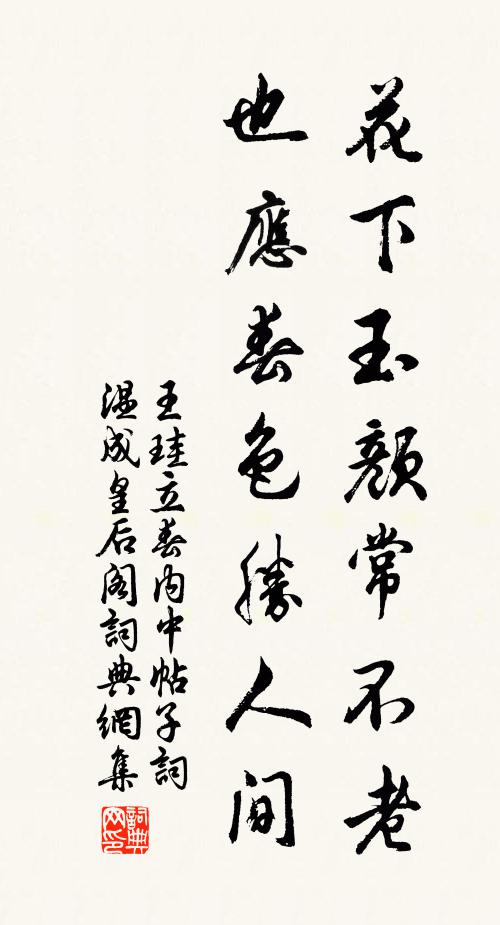 花下玉顏常不老
也應春色勝人間
王珪立春內中帖子詞
溫成皇后閣詞典網集
詞典
网印